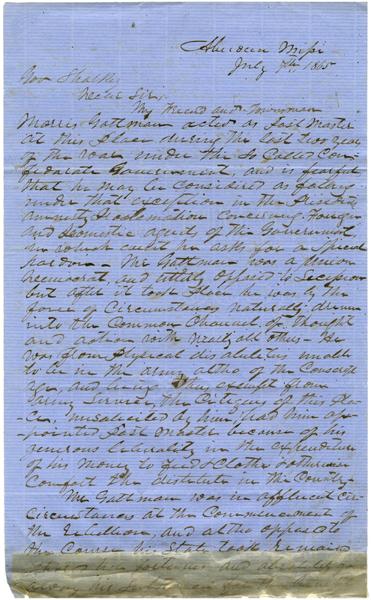 Aberdeen Missi
July 7th 1865
Gov Sharkey
Dear Sir,
My friend and Townsman
Morris Gattman acted as Post Master
at this place during the last two years
of the war under the So Called Con-
federate Government, and is fearful
that he may be considered as falling
under that exception in the Presidents
amnesty Proclamation concerning Foreign
and Domestic agents of the Government
in which event he asks for a Special
pardon - Mr Gattman was a Union
Democrat, and utterly opposed to Secession
but after it took place he was by the
force of Circumstances naturally drawn
into the Common Channel of thought
and action with nearly all others - He
was from physical disabilities unable
to be in the army altho of the Conscript
age, and being thus exempt from
army Service, the Citizens of this Pla-
ce, unsolicited by him, had him ap-
pointed Post Master because of his
generous liberality in the expenditure
of his money to feed & Clothe & otherwise
Comfort the destitute in the County -
Mr Gattman was in affluent cir-
Circumstances at the Commencement of
the Rebellion, and altho opposed to
the Course his State took remained